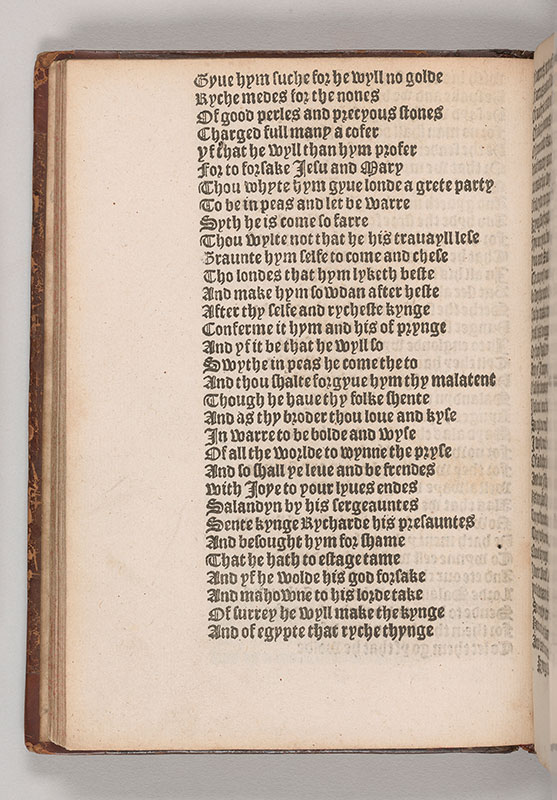 Gyue hym suche for he wyll no golde
Ryche medes for the nones
Of good perles and precyous stones
Charged full many a cofer
yf that he wyll than hym profer
For to forsake Jesu and Mary
Thou whyte hym gyue londe a grete party
To be in peas and let be warre
Syth he is come so farre
Thou wylte not that he his trauayll lese
Graunte hym selfe to come and chese
Tho londes that hym lyketh beste
And make hym sowdan after heste
After thy selfe and rycheste kynge
Conferme it hym and his of prynge
And yf it be that he wyll so
Swythe in peas he come the to
And thou shalte forgyue hym thy malatent
Though he haue thy folke shente
And as thy broder thou loue and kyse
In warre to be bolde and wyse
Of all the worlde to wynne the pryse
And so shall ye leue and be frendes
with Joye to your lyues endes
Salandyn by his sergeauntes
Sente kynge Rycharde his presauntes
And besought hym for shame
That he hath to estage tame
And yf he wolde his god forsake
And mahowne to his lorde take
Of surrey he wyll make the kynge
And of egypte that ryche thynge